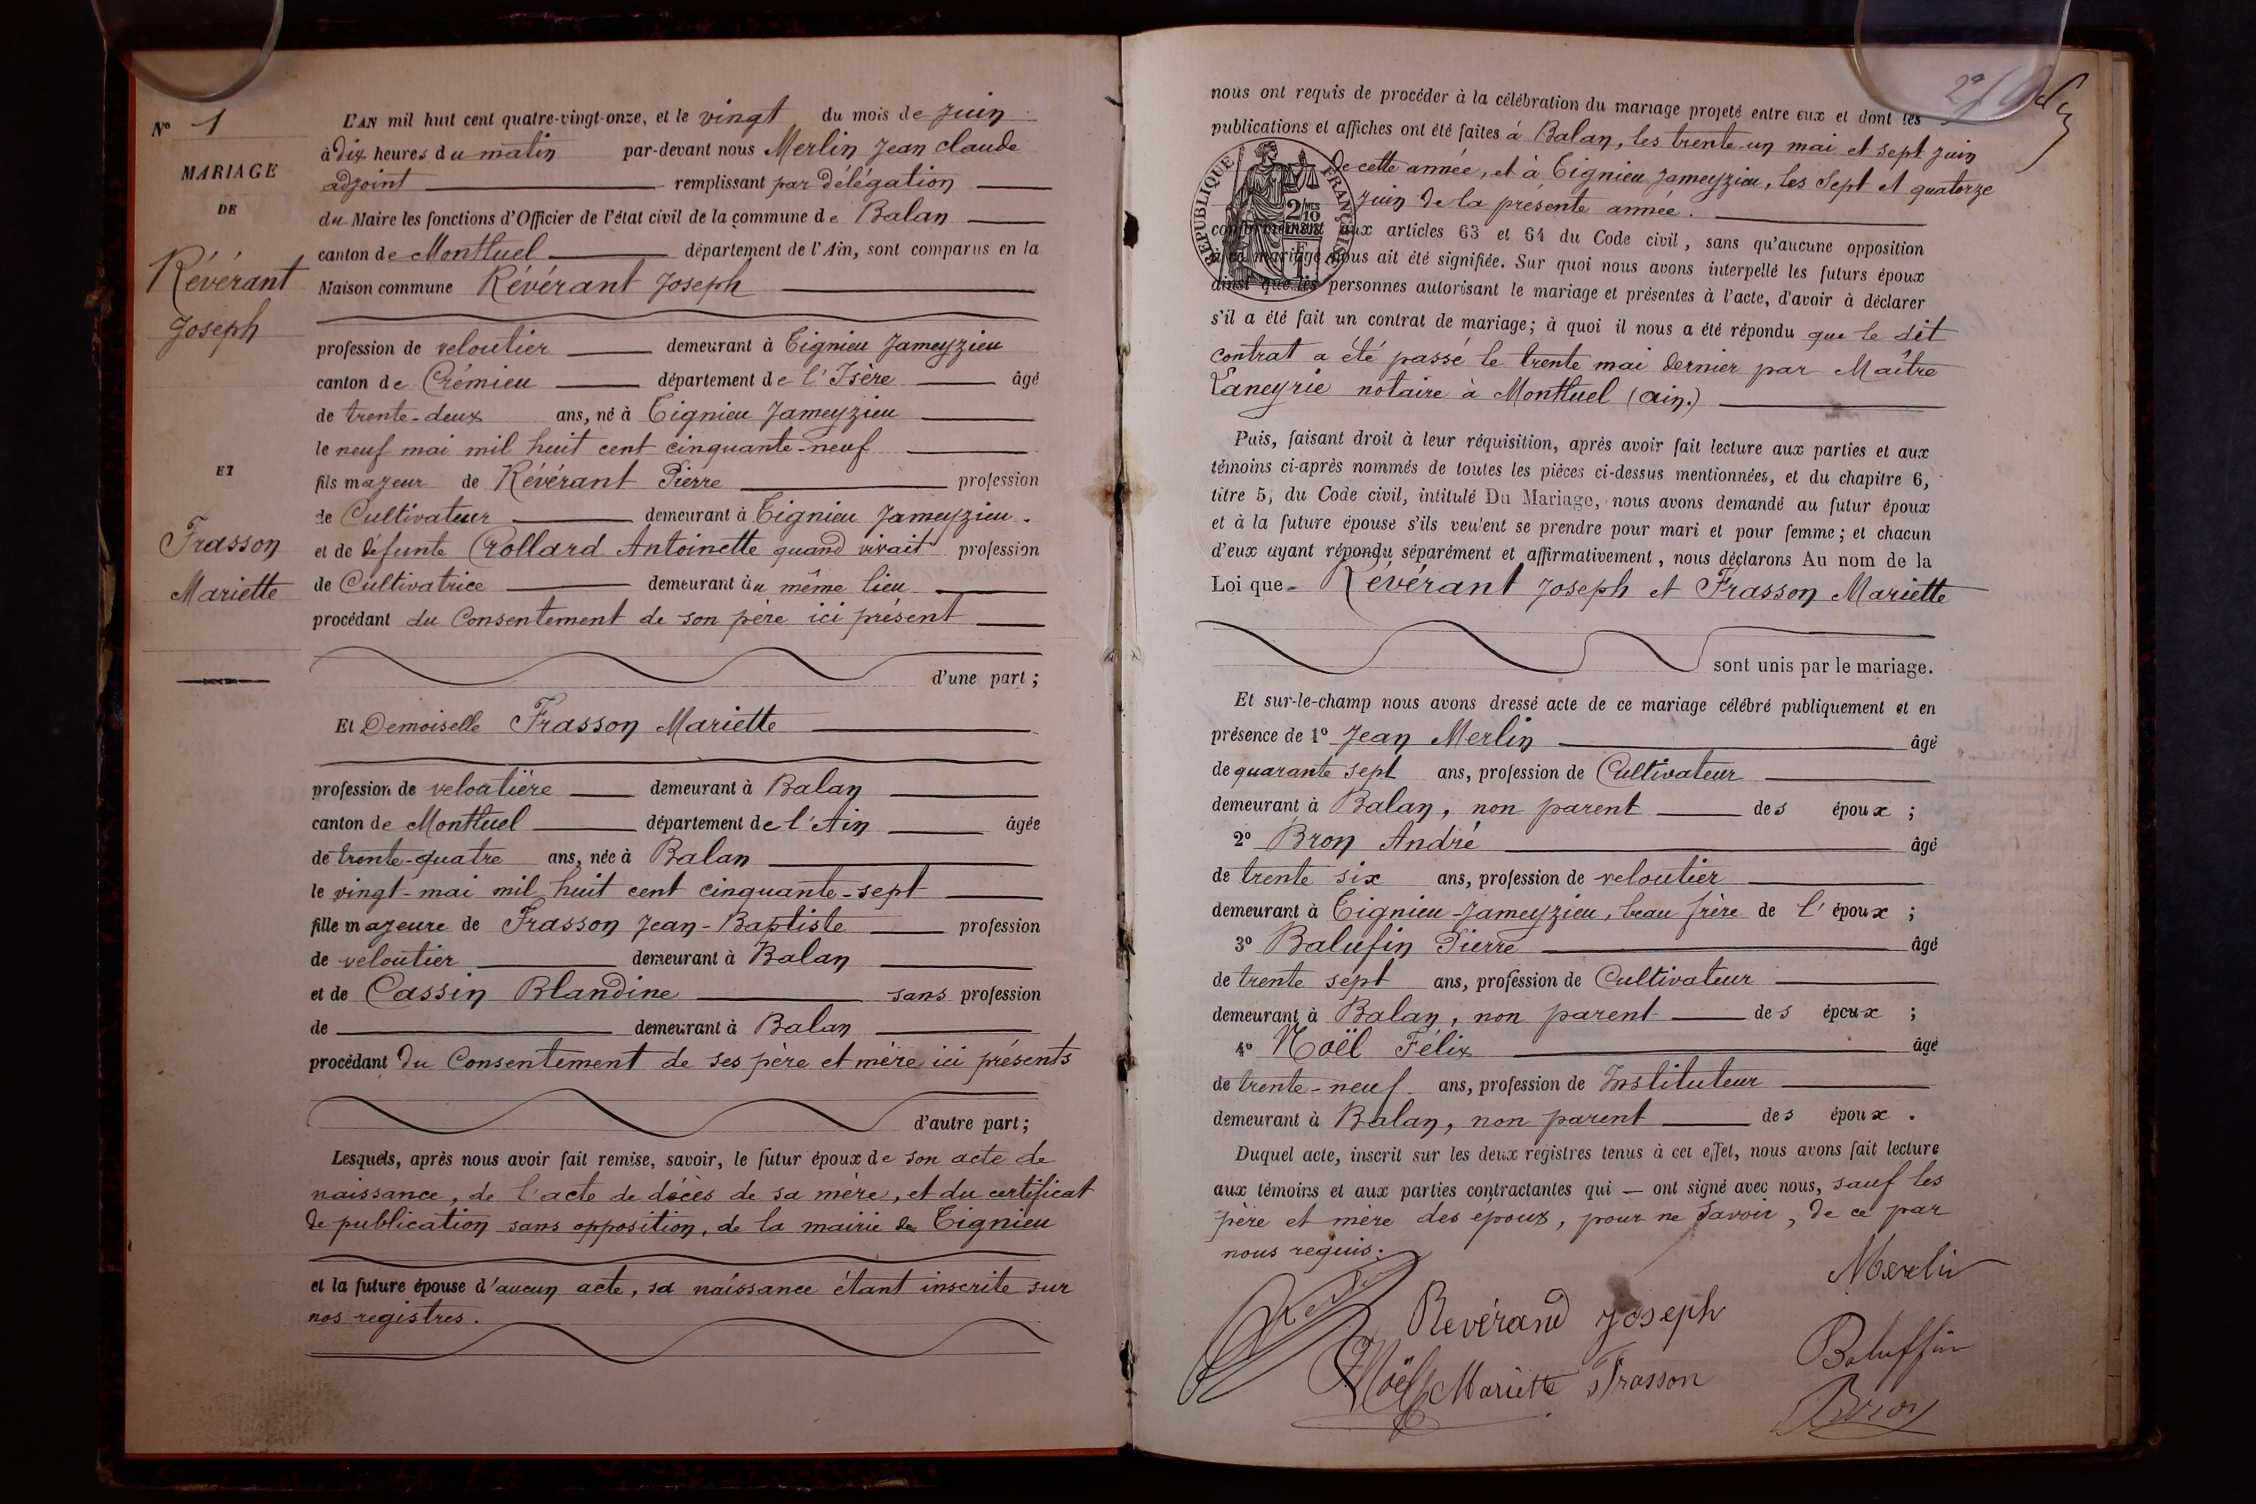 N° 1
MARIAGE
DE
Révérant
Joseph
ET
Frasson
Mariette
L'AN mil huit cent quatre-vingt-onze, et le vingt du mois de Juin
à dix heures du matin par-devant nous Merlin Jean Claude
adjoint remplissant par délégation
du Maire les fonctions d'Officier de l'état civil de la commune de Balan
canton de Montluel département de l'Ain, sont comparus en la
Maison commune Révérant Joseph
profession de veloutier demeurant à Tignieu Jameyzieu
canton de Crémieu département de l'Isère âgé
de trente-deux ans, né à Tignieu Jameyzieu
le neuf mai mil huit cent cinquante-neuf
fils majeur de Révérant Pierre profession
de Cultivateur demeurant à Tignieu Jameyzieu.
et de défunte Crollard Antoinette quand vivait profession
de Cultivatrice demeurant au même lieu
procédant du Consentement de son père ici présent
d'une part ;
Et Demoiselle Frasson Mariette
profession de veloutière demeurant à Balan
canton de Montluel département de l'Ain âgée
de trente-quatre ans, née à Balan
le vingt-mai mil huit cent cinquante-sept
fille majeure de Frasson Jean-Baptiste profession
de veloutier demeurant à Balan
et de Cassin Blandine sans profession
de demeurant à Balan
procédant du Consentement de ses père et mère ici présents
d'autre part ;
Lesquels, après nous avoir fait remise, savoir, le futur époux de son acte de
naissance, de l'acte de décès de sa mère, et du certificat
de publication sans opposition, de la mairie de Tignieu
et la future épouse d'aucun acte, sa naissance étant inscrite sur
nos registres.
nous ont requis de procéder à la célébration du mariage projeté entre eux et dont les
publications et affiches ont été faites à Balan, les trente-un mai et sept juin
de cette année, et à Tignieu Jameyzieu, les sept et quatorze
juin de la présente année.
RÉPUBLIQUE FRANÇAISE
2/10
conformément aux articles 63 et 64 du Code civil, sans qu'aucune opposition
à ce mariage nous ait été signifiée. Sur quoi nous avons interpellé les futurs époux
ainsi que les personnes autorisant le mariage et présentes à l'acte, d'avoir à déclarer
s'il a été fait un contrat de mariage ; à quoi il nous a été répondu que le dit
contrat a été passé le trente mai dernier par Maître
Laneyrie notaire à Montluel (ain.)
Puis, faisant droit à leur réquisition, après avoir fait lecture aux parties et aux
témoins ci-après nommés de toutes les pièces ci-dessus mentionnées, et du chapitre 6,
titre 5, du Code civil, intitulé Du Mariage, nous avons demandé au futur époux
et à la future épouse s'ils veulent se prendre pour mari et pour femme ; et chacun
d'eux ayant répondu séparément et affirmativement, nous déclarons Au nom de la
Loi que Révérant Joseph et Frasson Mariette
sont unis par le mariage.
Et sur-le-champ nous avons dressé acte de ce mariage célébré publiquement et en
présence de 1° Jean Merlin âgé
de quarante sept ans, profession de Cultivateur
demeurant à Balan, non parent des époux ;
2° Bron André âgé
de trente six ans, profession de veloutier
demeurant à Tignieu-Jameyzieu, beau frère de l'époux ;
3° Balufin Pierre âgé
de trente sept ans, profession de Cultivateur
demeurant à Balan, non parent des époux ;
4° Noël Félix âgé
de trente-neuf ans, profession de Instituteur
demeurant à Balan, non parent des époux.
Duquel acte, inscrit sur les deux registres tenus à cet effet, nous avons fait lecture
aux témoins et aux parties contractantes qui — ont signé avec nous, sauf les
père et mère des époux, pour ne savoir, de ce par
nous requis.
Merlin
Revérand Joseph
Baluffin
Noël Mariette Frasson
Bron